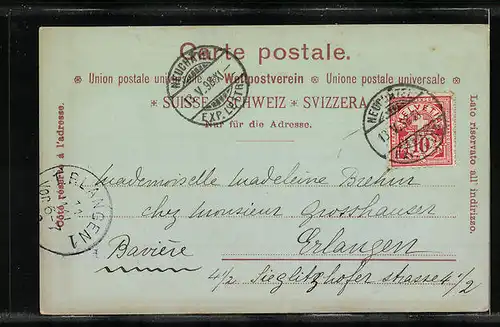 Carte postale.
Union postale universelle. Weltpostverein Unione postale universale
SUISSE. SCHWEIZ. SVIZZERA.
Nur für die Adresse.
Côté réservé à l'adresse.
Lato riservato all' indirizzo.
NEUCHÂTEL
13.V.98.XI
EXP.LETTR.
NEUCHÂTEL
HELVETIA
10
ERLANGEN 1
Mademoiselle Madeleine Brehm
chez Monsieur Grosshauser
Bavière Erlangen
4 1/2 Sieglitzhofer strasse 4 1/2